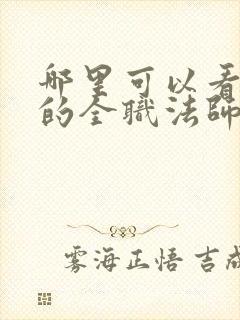 哪里可以看
的全职法师
雾海正悟 吉成